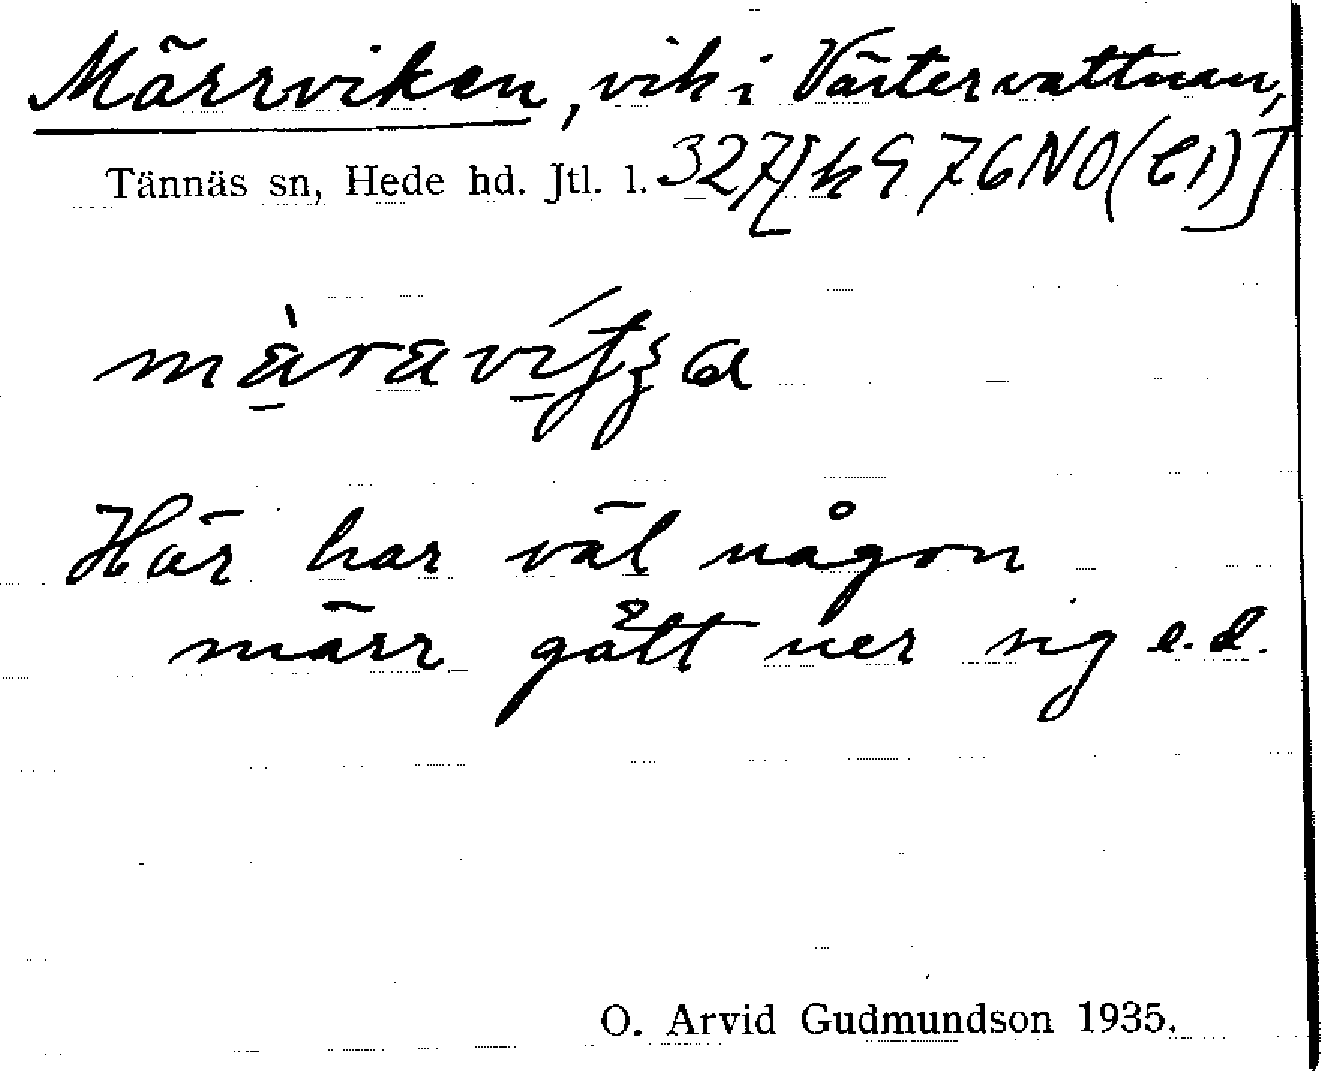 Märrviken, vik i Västervattnan,
Tännäs sn, Hede hd. Jtl. l. 327[k9 76NO(C1)]
Här har väl någon
märr gått ner sig e.d.
O. Arvid Gudmundson 1935.